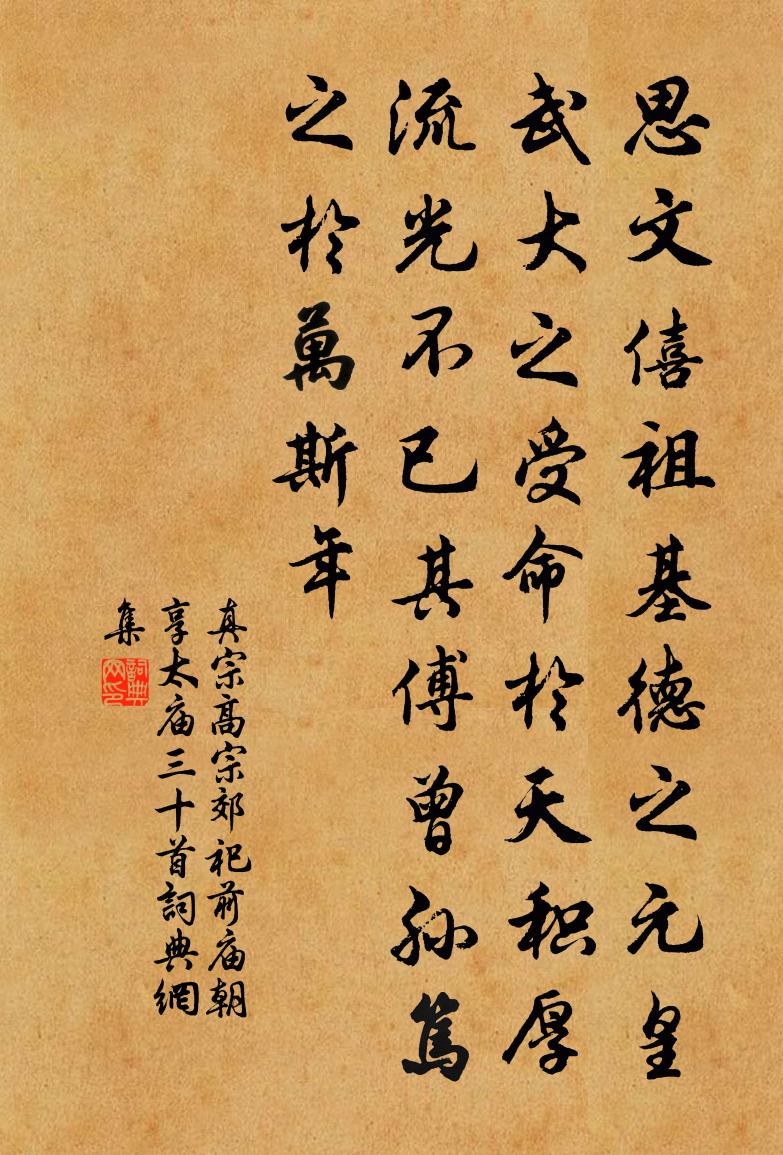 思文僖祖基德之元皇
武大之受命於天积厚
流光不已其傅曾孙篤
之於萬斯年
真宗高宗郊祀前庙朝
享太庙三十首詞典網
集
詞典網印